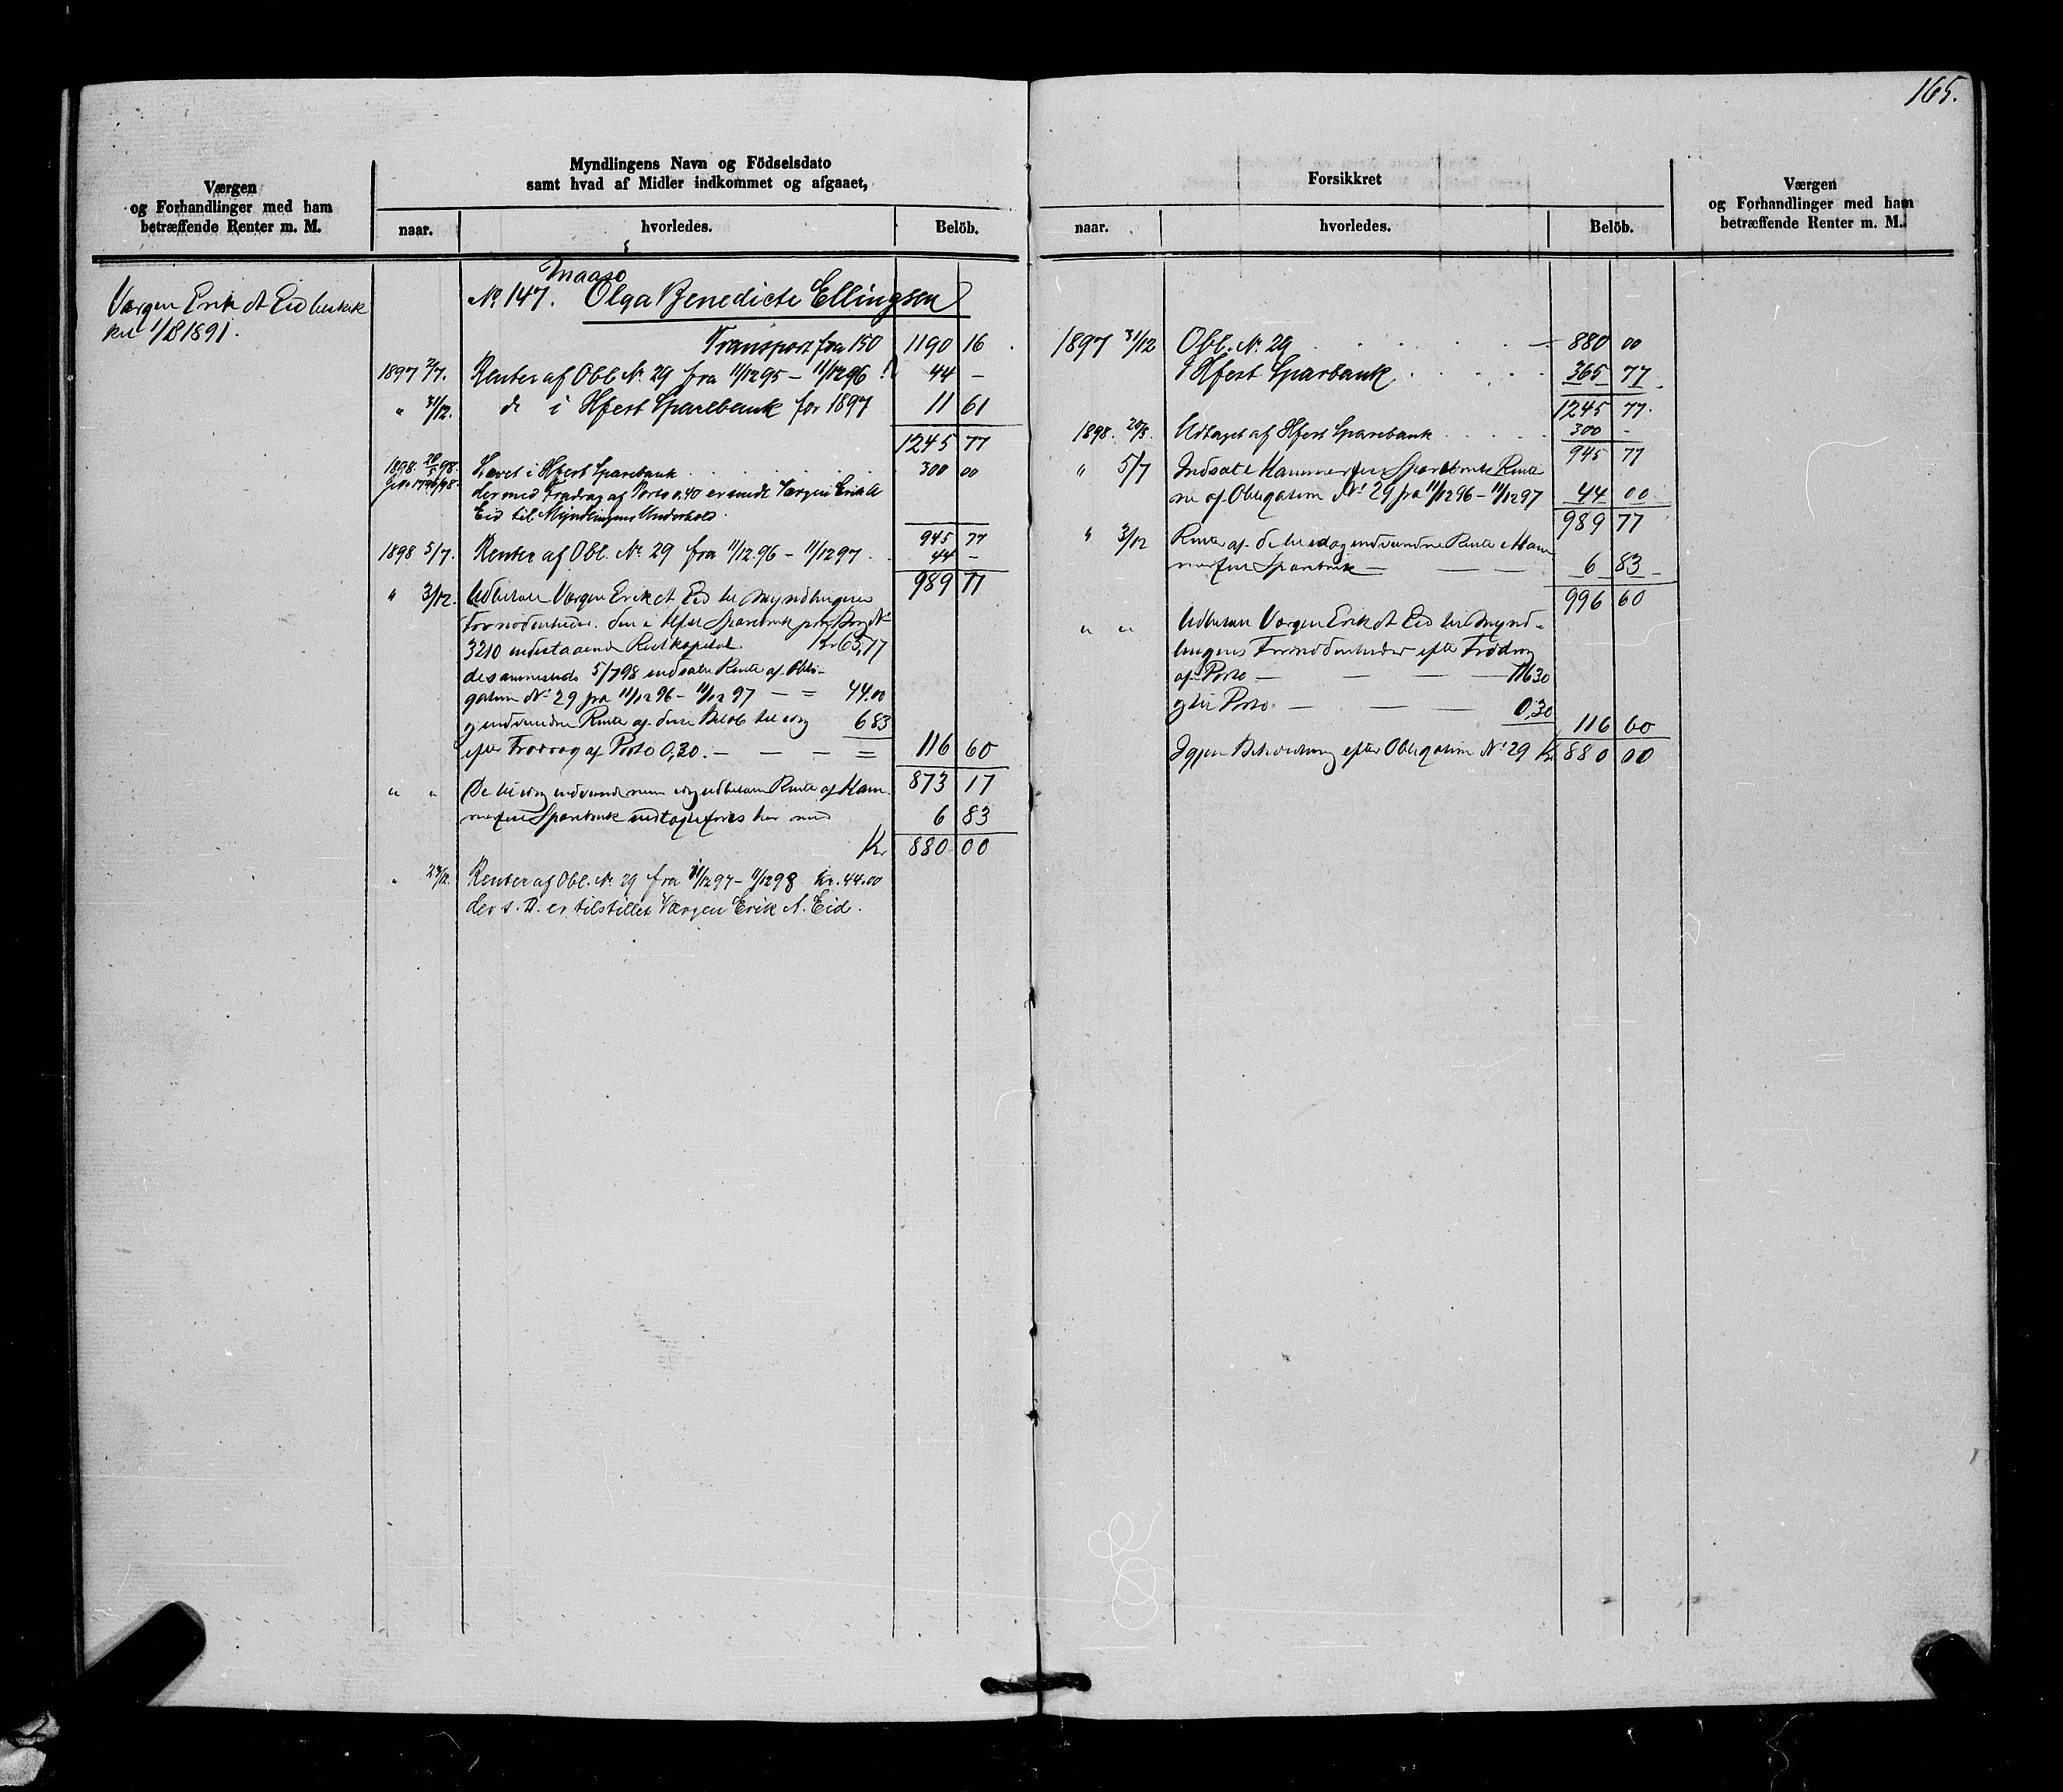 165.
Værgen
og Forhandlinger med ham
betræffende Renter m. M.
Myndlingens Navn og Födselsdato
samt hvad af Midler indkommet og afgaaet,
naar.
hvorledes.
Belöb.
Værgen Erik A Eid beskik
ket 1/8 1891.
Maasø
No. 147. Olga Benedicte Ellingsen
Transport fra 150 1190 16
1897 2/7. Renter af Obl. No. 29 fra 11/12 95 – 11/12 96 44 –
" 31/12. do i Hfest Sparebank for 1897 11 61
1245 77
1898 20/5 98. Hævet i Hfest Sparebank 300 00
der med Fradrag af Porto 0.40 er sendt Værgen Erik A
Eid til Myndlingens Underhold.
945 77
1898 5/7. Renter af Obl. No. 29 fra 11/12.96 – 11/12 97 44 –
989 77
" 3/12. Udbetalt Værgen Erik A Eid til Myndlingens
Fornödenheder: den i Hfest Sparebank paa No
3210 indestaaende Restkapital Kr 65,77
de sammesteds 5/7 98 indsatte Renter af Obli-
gation No 29 fra 11/12 96 – 11/12 97 – = 44.00
og indvundne Renter af disse Belöb til idag 6 83
efter Fradrag af Porto 0,30. – – – = 116 60
873 17
" " De til idag indvundne og udbetalte Renter af Ham-
merfest Sparebank indtagtsføres her med 6 83
Kr 880 00
" 24/12. Renter af Obl. No. 29 fra 11/12 97 – 11/12 98 Kr. 44.00
der s. D. er tilstillet Værgen Erik A. Eid.
Forsikkret
naar.
hvorledes.
Belöb.
Værgen
og Forhandlinger med ham
betræffende Renter m. M.
1897 31/12 Obl. No. 29 880 00
i Hfest Sparbank 365 77
1245 77
1898. 20/5. Udtaget af Hfest Sparebank 300 –
945 77
" 5/7 Indsat i Hammerfest Sparebank Rente
ne af Obligation No 29 fra 11/12 96 – 11/12 97 44 00
989 77
" 3/12 Renter af de til idag indvundne Renter i Ham
merfest Sparebank – – – 6 83
996 60
" " Udbetalt Værgen Erik A Eid til Mynd-
lingens Fornödenheder efter Fradrag
af Porto – – – – 116 30
og til Porto – – – 0,30
116 60
Igjen Beholdning efter Obligation No 29 Kr 880 00